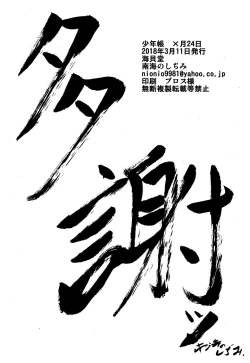 少年帳　×月24日
2018年3月11日発行
海貝堂
南海のしぢみ
nionio9981@yahoo.co.jp
印刷　プロス様
無断複製転載等禁止
多謝ッ